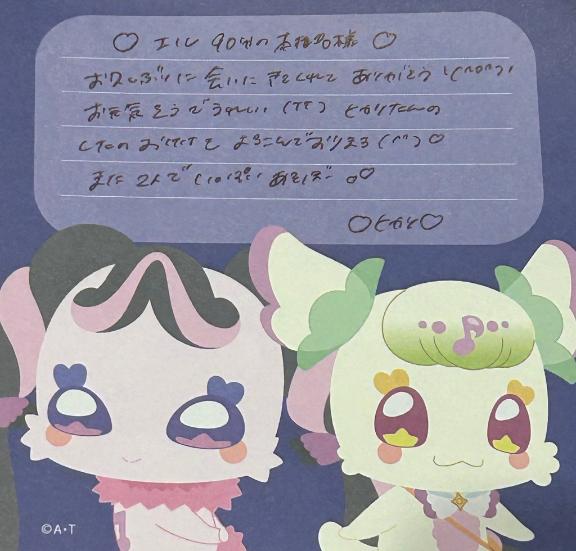 ♡ エル 90分の本指名様 ♡
お久しぶりに会いにきてくれて ありがとう \(^o^)/
お元気そうでうれしい (TT) ヒカリたんの
したの おけけも よろこんでおりまする (^^)♡
また 2人で いっぱい あそぼー ♡
♡ヒカリ♡
©A・T